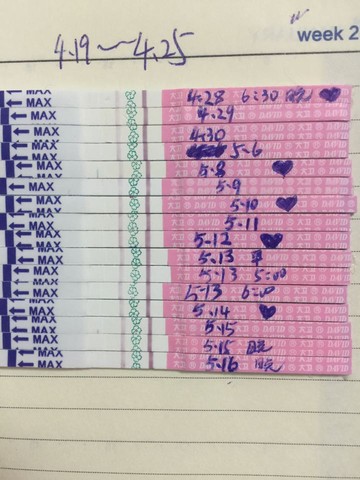 week 2
4.19~4.25
MAX 4.28 6:30
MAX 4.29
MAX 4.30
MAX 5.6
MAX 5.8
MAX 5.9
MAX 5.10
MAX 5.11
MAX 5.12
MAX 5.13 早
MAX 5.13 5:00
MAX 5.13 6:00
MAX 5.14
MAX 5.15
MAX 5.15 晚
MAX 5.16 晚